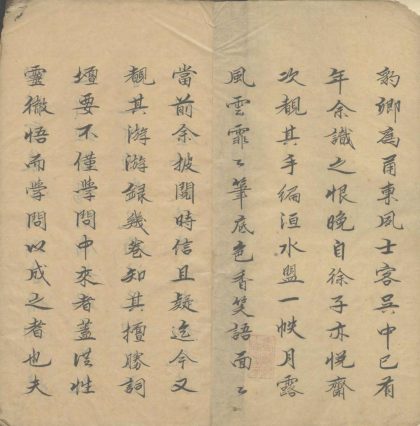 豹鄉為甬東風士客吳中已有
年余識之恨晚自徐子亦悅齋
次覩其手編洹水盟一帙月露
風雲霏〻筆底色香笑語面〻
當前余披閱時信且疑迄今又
覩其游游録幾卷知其擅勝詞
壇要不僅學問中來者蓋從性
靈徹悟而學問以成之者也夫